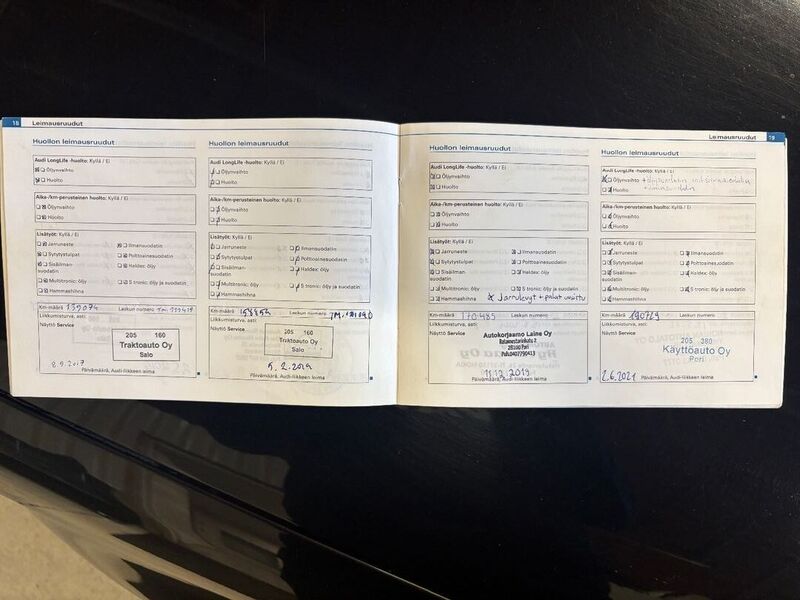 18 Leimausruudut
Huollon leimausruudut
Audi LongLife -huolto: Kyllä / Ei
Öljynvaihto
Huolto
Aika-/km-perusteinen huolto: Kyllä / Ei
Öljynvaihto
Huolto
Lisätyöt: Kyllä / Ei
Jarruneste
Ilmansuodatin
Sytytystulpat
Polttoainesuodatin
Sisäilman-
suodatin
Haldex: öljy
Multitronic: öljy
S tronic: öljy ja suodatin
Hammashihna
Km-määrä 139074 Laskun numero
Liikkumisturva, asti:
Näyttö Service
205 160
Traktoauto Oy
Salo
8.9.2017
Päivämäärä, Audi-liikkeen leima
Huollon leimausruudut
Audi LongLife -huolto: Kyllä / Ei
Öljynvaihto
Huolto
Aika-/km-perusteinen huolto: Kyllä / Ei
Öljynvaihto
Huolto
Lisätyöt: Kyllä / Ei
Jarruneste
Ilmansuodatin
Sytytystulpat
Polttoainesuodatin
Sisäilman-
suodatin
Haldex: öljy
Multitronic: öljy
S tronic: öljy ja suodatin
Hammashihna
Km-määrä Laskun numero
Liikkumisturva, asti:
Näyttö Service
205 160
Traktoauto Oy
Salo
5.2.2019
Päivämäärä, Audi-liikkeen leima
Leimausruudut 19
Huollon leimausruudut
Audi LongLife -huolto: Kyllä / Ei
Öljynvaihto
Huolto
Aika-/km-perusteinen huolto: Kyllä / Ei
Öljynvaihto
Huolto
Lisätyöt: Kyllä / Ei
Jarruneste
Ilmansuodatin
Sytytystulpat
Polttoainesuodatin
Sisäilman-
suodatin
Haldex: öljy
Multitronic: öljy
S tronic: öljy ja suodatin
Hammashihna
Jarrulevyt + palat uusittu
Km-määrä 170485 Laskun numero
Liikkumisturva, asti:
Näyttö Service
Autokorjaamo Laine Oy
28100 Pori
11.12.2019
Päivämäärä, Audi-liikkeen leima
Huollon leimausruudut
Audi LongLife -huolto: Kyllä / Ei
Öljynvaihto
Huolto
Aika-/km-perusteinen huolto: Kyllä / Ei
Öljynvaihto
Huolto
Lisätyöt: Kyllä / Ei
Jarruneste
Ilmansuodatin
Sytytystulpat
Polttoainesuodatin
Sisäilman-
suodatin
Haldex: öljy
Multitronic: öljy
S tronic: öljy ja suodatin
Hammashihna
Km-määrä 190729 Laskun numero
Liikkumisturva, asti:
Näyttö Service
205 380
Käyttöauto Oy
Pori
2.6.2021
Päivämäärä, Audi-liikkeen leima